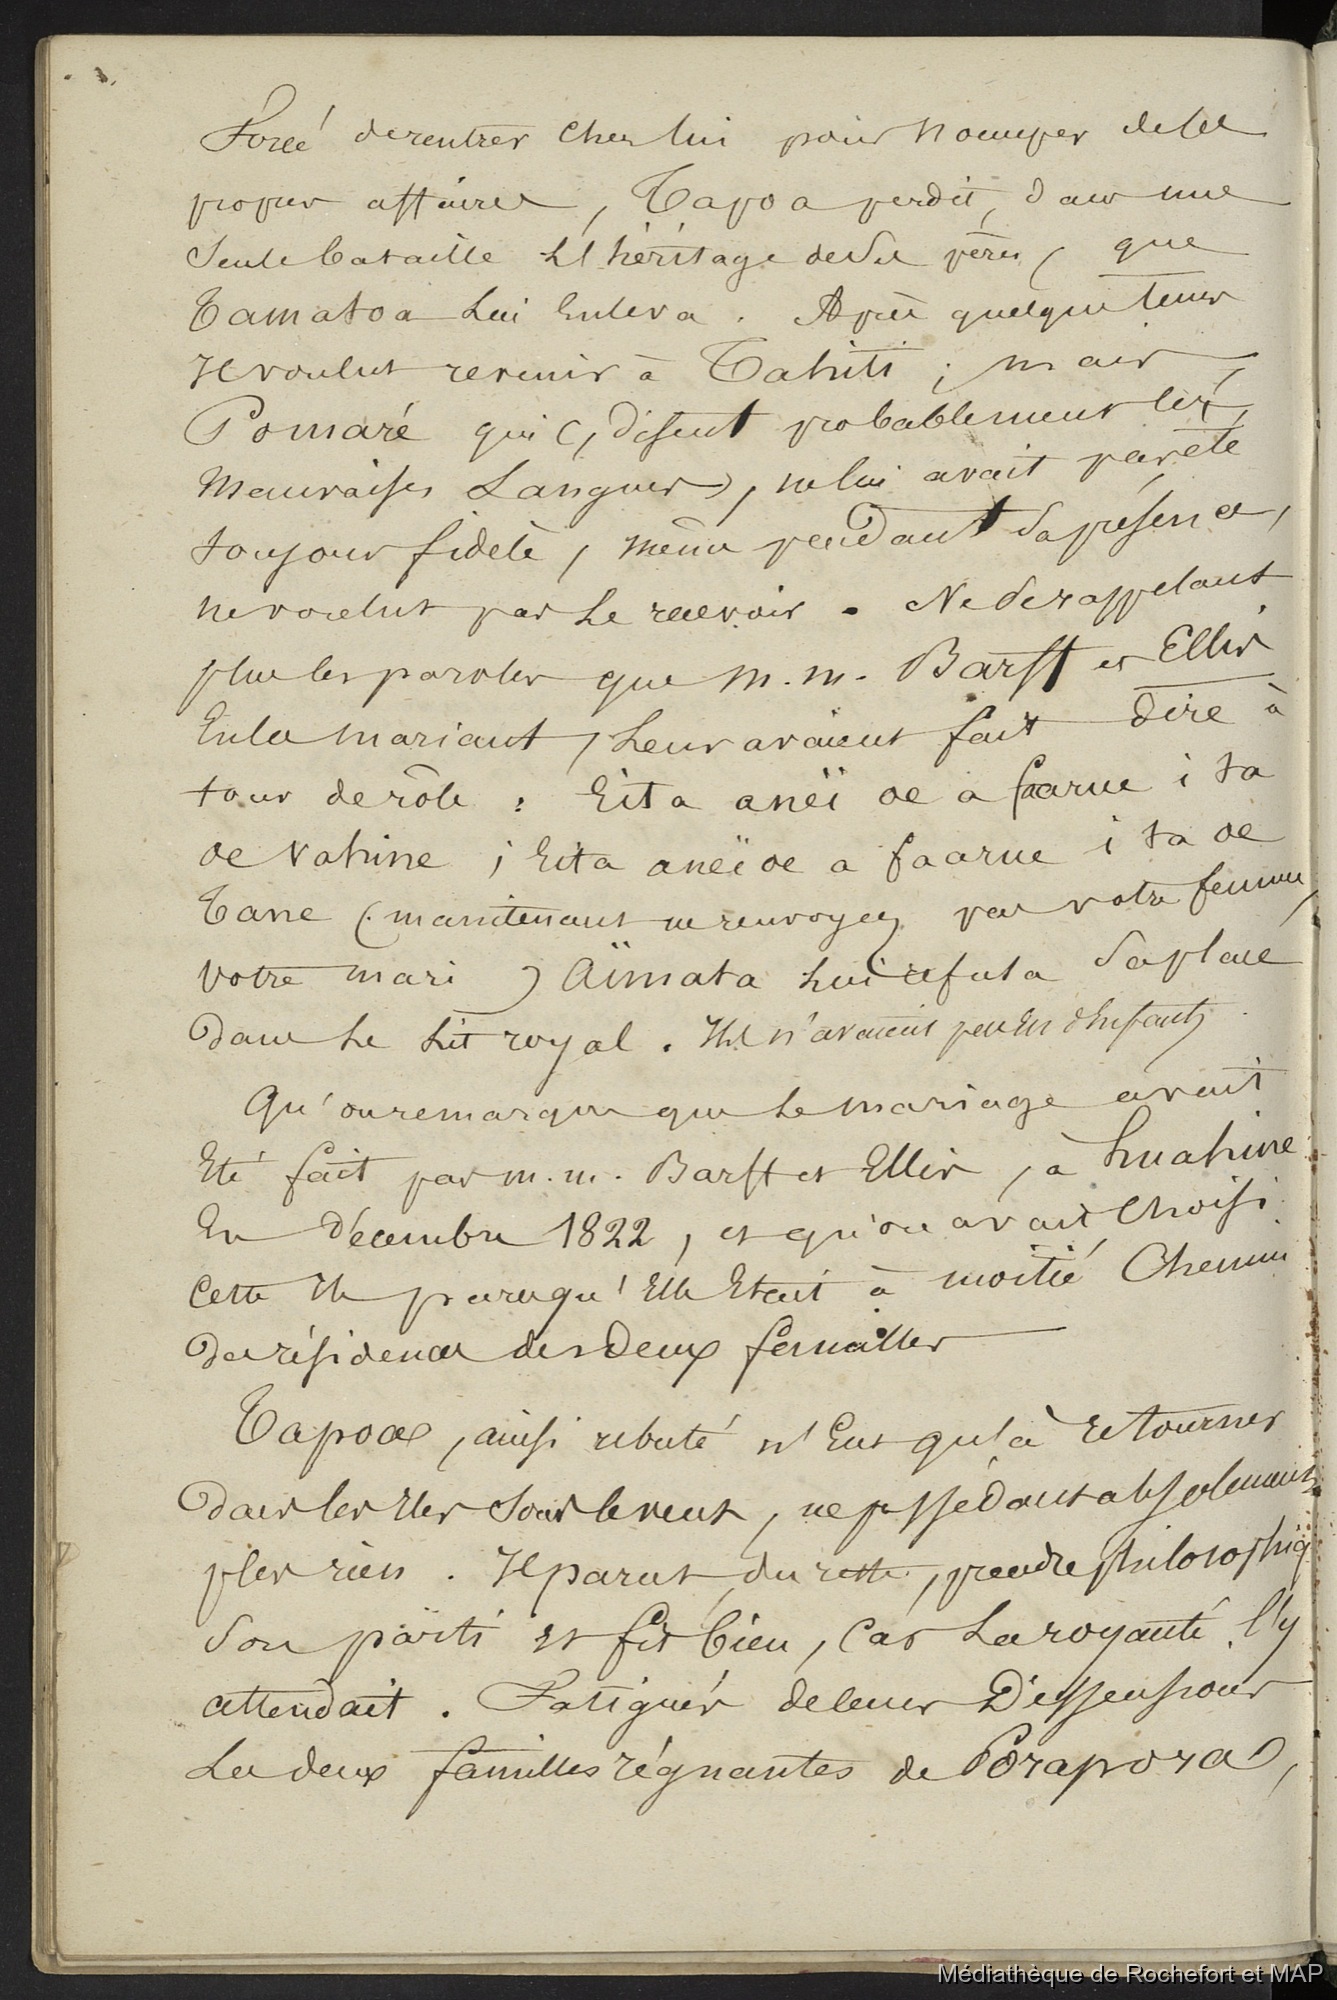 Forcé de rentrer chez lui pour s'occuper de ses
propres affaires, Tapoa perdit, dans une
seule bataille l'héritage de ses pères, que
Tamatoa lui enleva. Après quelque tems
Il voulut revenir à Tahiti ; mais
Pomaré qui (, disent probablement les
mauvaises langues), ne lui avait pas été
toujours fidèle, même pendant sa présence,
ne voulut pas le recevoir. Ne se rappelant
plus les paroles que m.m. Barff et Ellis
en les mariant, leur avaient fait dire à
tour de rôle : Eita aneï oe a faarue i ta
oe vahine ; Eita aneï oe a faarue i ta oe
Tane (maintenant ne renvoyez pas votre femme,
votre mari) Aïmata lui refusa sa place
dans le lit royal. Ils n'avaient pas eu d'enfants
Qu'on remarque que le mariage avait
Eté fait par m.m. Barff et Ellis, à huahine
En décembre 1822, et qu'on avait choisi
cette Ile parce qu'Elle Etait à moitié chemin
des résidences des deux familles
Tapoa, ainsi rebuté n'Eut qu'à retourner
dans les Iles sous le vent, ne possédant absolument
plus rien. Il parut, du reste, prendre philosophiq
son parti et fit bien, car la royauté l'y
attendait. Fatigués de leurs dissensions
les deux familles régnantes de Borapora,
Médiathèque de Rochefort et MAP